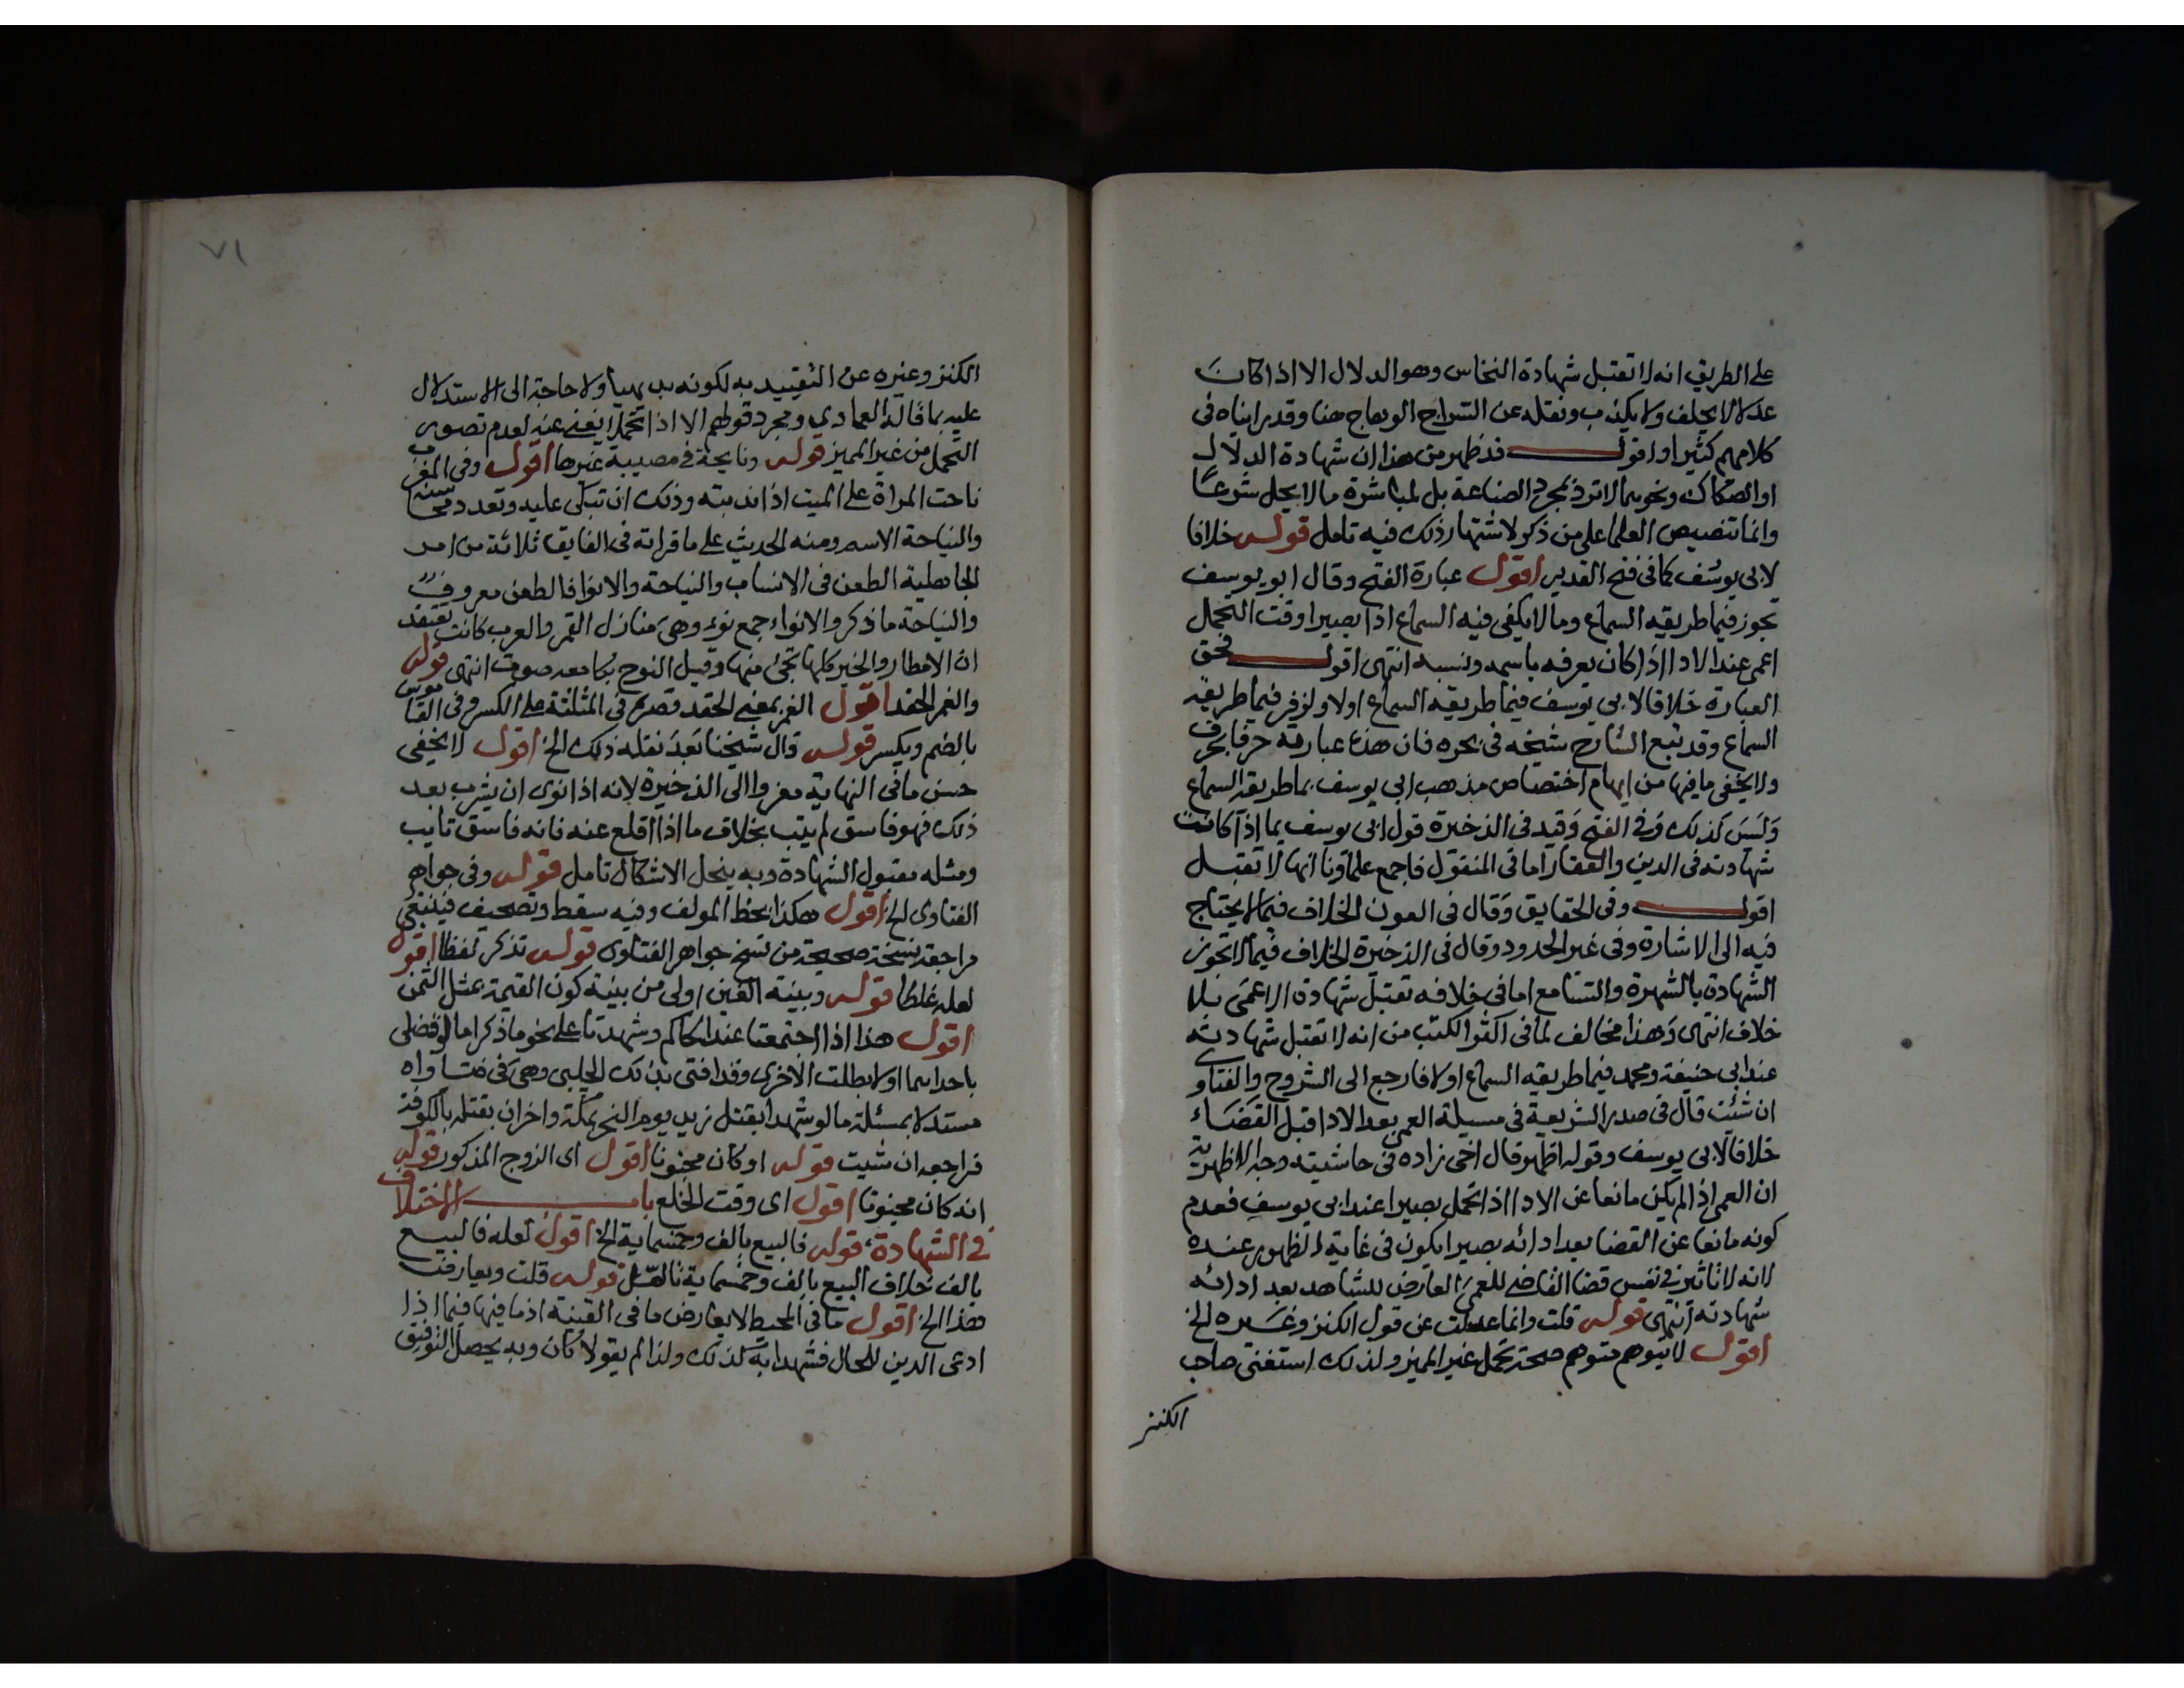 على الطريق انه لا تقبل شهادة النخاس وهو الدلال الا اذا كان
عدلا لا يحلف ولا يكذب ونقله عن السراج الوهاج هنا وقد رايناه في
كلامهم كثيرا واقول فقد ظهر من هذا ان شهادة الدلال
او الصكاك ونحوهما لا ترد لمجرد الصناعة بل لمباشرة ما لا يحل شرعا
وانما تنصيص العلما على من ذكر لاشتهار ذلك فيه تامل قوله خلافا
لابي يوسف كما في فتح القدير اقول عبارة الفتح وقال ابو يوسف
يجوز فيما طريقه السماع وما لا يكفي فيه السماع اذا بصيرا وقت التحمل
اعمى عند الادا اذا كان يعرفه باسمه ونسبه انتهى اقول فحق
العبارة خلافا لابي يوسف فيما طريقه السماع اولا ولزفر فيما طريقه
السماع وقد تبع الشارح شيخه في بحره فان هذه عبارته حرفا بحرف
ولا يخفى ما فيها من ايهام اختصاص مذهب ابي يوسف بما طريقه السماع
وليس كذلك وفي الفتح وقيد في الذخيرة قول ابي يوسف بما اذا كانت
شهادته في الدين والعقار اما في المنقول فاجمع علماؤنا انها لا تقبل
اقول وفي الحقايق وقال في العون الخلاف فيما لا يحتاج
فيه الى الاشارة وفي غير الحدود وقال في الذخيرة الخلاف فيما لا تجوز
الشهادة بالشهرة والتسامع اما في خلافه تقبل شهادة الاعمى بلا
خلاف انتهى وهذا مخالف لما في اكثر الكتب من انه لا تقبل شهادته
عند ابي حنيفة ومحمد فيما طريقه السماع اولا فارجع الى الشروح والفتاوي
ان شئت قال في صدر الشريعة في مسيلة العمى بعد الادا قبل القضاء
خلافا لابي يوسف وقوله اظهر قال اخي زاده في حاشيته وجه الاظهرية
ان العمى اذا لم يكن مانعا عن الادا اذا تحمل بصيرا عند ابي يوسف فعدم
كونه مانعا عن القضا بعد ادائه بصيرا يكون في غاية الظهور عنده
لانه لا تاثير في نفس قضا القاضي للعمى العارض للشاهد بعد ادائه
شهادته انتهى قوله قلت وانما عدلت عن قول الكنز وغيره الخ
اقول لا يتوهم متوهم صحة تحمل غير المميز ولذلك استغنى صاحب
الكنز
٧١
الكنز وغيره عن التقييد به لكونه بديهيا ولا حاجة الى الاستدلال
عليه بما قاله العمادي ومجرد قولهم الا اذا تحملا يغني عنه لعدم تصور
التحمل من غير المميز قوله ونايحة في مصيبة غيرها اقول وفي المغرب
ناحت المراة على الميت اذا ندبته وذلك ان تبكي عليه وتعدد محاسنه
والنياحة الاسم ومنه الحديث على ما قراته في الفايق ثلاثة من امر
الجاهلية الطعن في الانساب والنياحة والانوا فالطعن معروف
والنياحة ما ذكر والانواء جمع نوء وهي منازل القمر والعرب كانت تعتقد
ان الامطار والخير كلها تجئ منها وقيل النوح بكا معه صوت انتهى قوله
والغمر الحقد اقول الغمر بمعنى الحقد قصره في المثلثة على الكسر وفي القاموس
بالضم ويكسر قوله قال شيخنا بعد نقله ذلك الخ اقول لا يخفى
حسن ما في النهاية معزوا الى الذخيرة لانه اذا نوى ان يشرب بعد
ذلك فهو فاسق لم يتب بخلاف ما اذا اقلع عنه فانه فاسق تايب
ومثله مقبول الشهادة وبه ينحل الاشكال تامل قوله وفي جواهر
الفتاوى الخ اقول هكذا بخط المولف وفيه سقط وتصحيف فينبغي
مراجعة نسخة صحيحة من نسخ جواهر الفتاوى قوله تذكر لفظا اقول
لعله غلطا قوله وبينة الغبن اولى من بينة كون القيمة مثل الثمن
اقول هذا اذا اجتمعتا عند الحاكم وشهدتا على نحو ما ذكر اما لو قضى
باحداهما اولا بطلت الاخرى وقد افتى بذلك الحلبي وهي في فتاواه
مستدلا بمسئلة ما لو شهدا بقتل زيد يوم النحر بمكة واخران بقتله بالكوفة
فراجعه ان شيت قوله او كان مجنونا اقول اى الزوج المذكور قوله
انه كان مجنونا اقول اى وقت الخلع باب الاختلاف
في الشهادة قوله فالبيع بالف وخمسماية الخ اقول لعله فالبيع
بالف خلاف البيع بالف وخمسماية تامل قوله قلت ويعارض
هذا الخ اقول ما في المحيط لا يعارض ما في القنية اذ ما فيها فيما اذا
ادعى الدين للحال فشهدا به كذلك ولذا لم يقولا كان وبه يحصل التوفيق